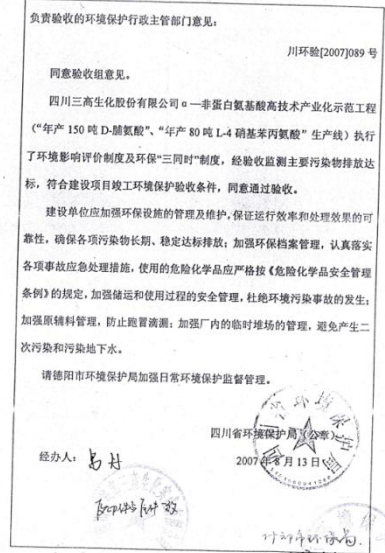 负责验收的环境保护行政主管部门意见：
川环验[2007]089 号
同意验收组意见。
四川三高生化股份有限公司 α—非蛋白氨基酸高技术产业化示范工程
（“年产 150 吨 D-脯氨酸”、“年产 80 吨 L-4 硝基苯丙氨酸”生产线）执行
了环境影响评价制度及环保“三同时”制度，经验收监测主要污染物排放达
标，符合建设项目竣工环境保护验收条件，同意通过验收。
建设单位应加强环保设施的管理及维护，保证运行效率和处理效果的可
靠性，确保各项污染物长期、稳定达标排放；加强环保档案管理，认真落实
各项事故应急处理措施，使用的危险化学品应严格按《危险化学品安全管理
条例》的规定，加强储运和使用过程的安全管理，杜绝环境污染事故的发生；
加强原辅料管理，防止跑冒滴漏；加强厂内的临时堆场的管理，避免产生二
次污染和污染地下水。
请德阳市环境保护局加强日常环境保护监督管理。
四川省环境保护局（公章）
经办人：
2007 年 8 月 13 日
四川省环境保护局